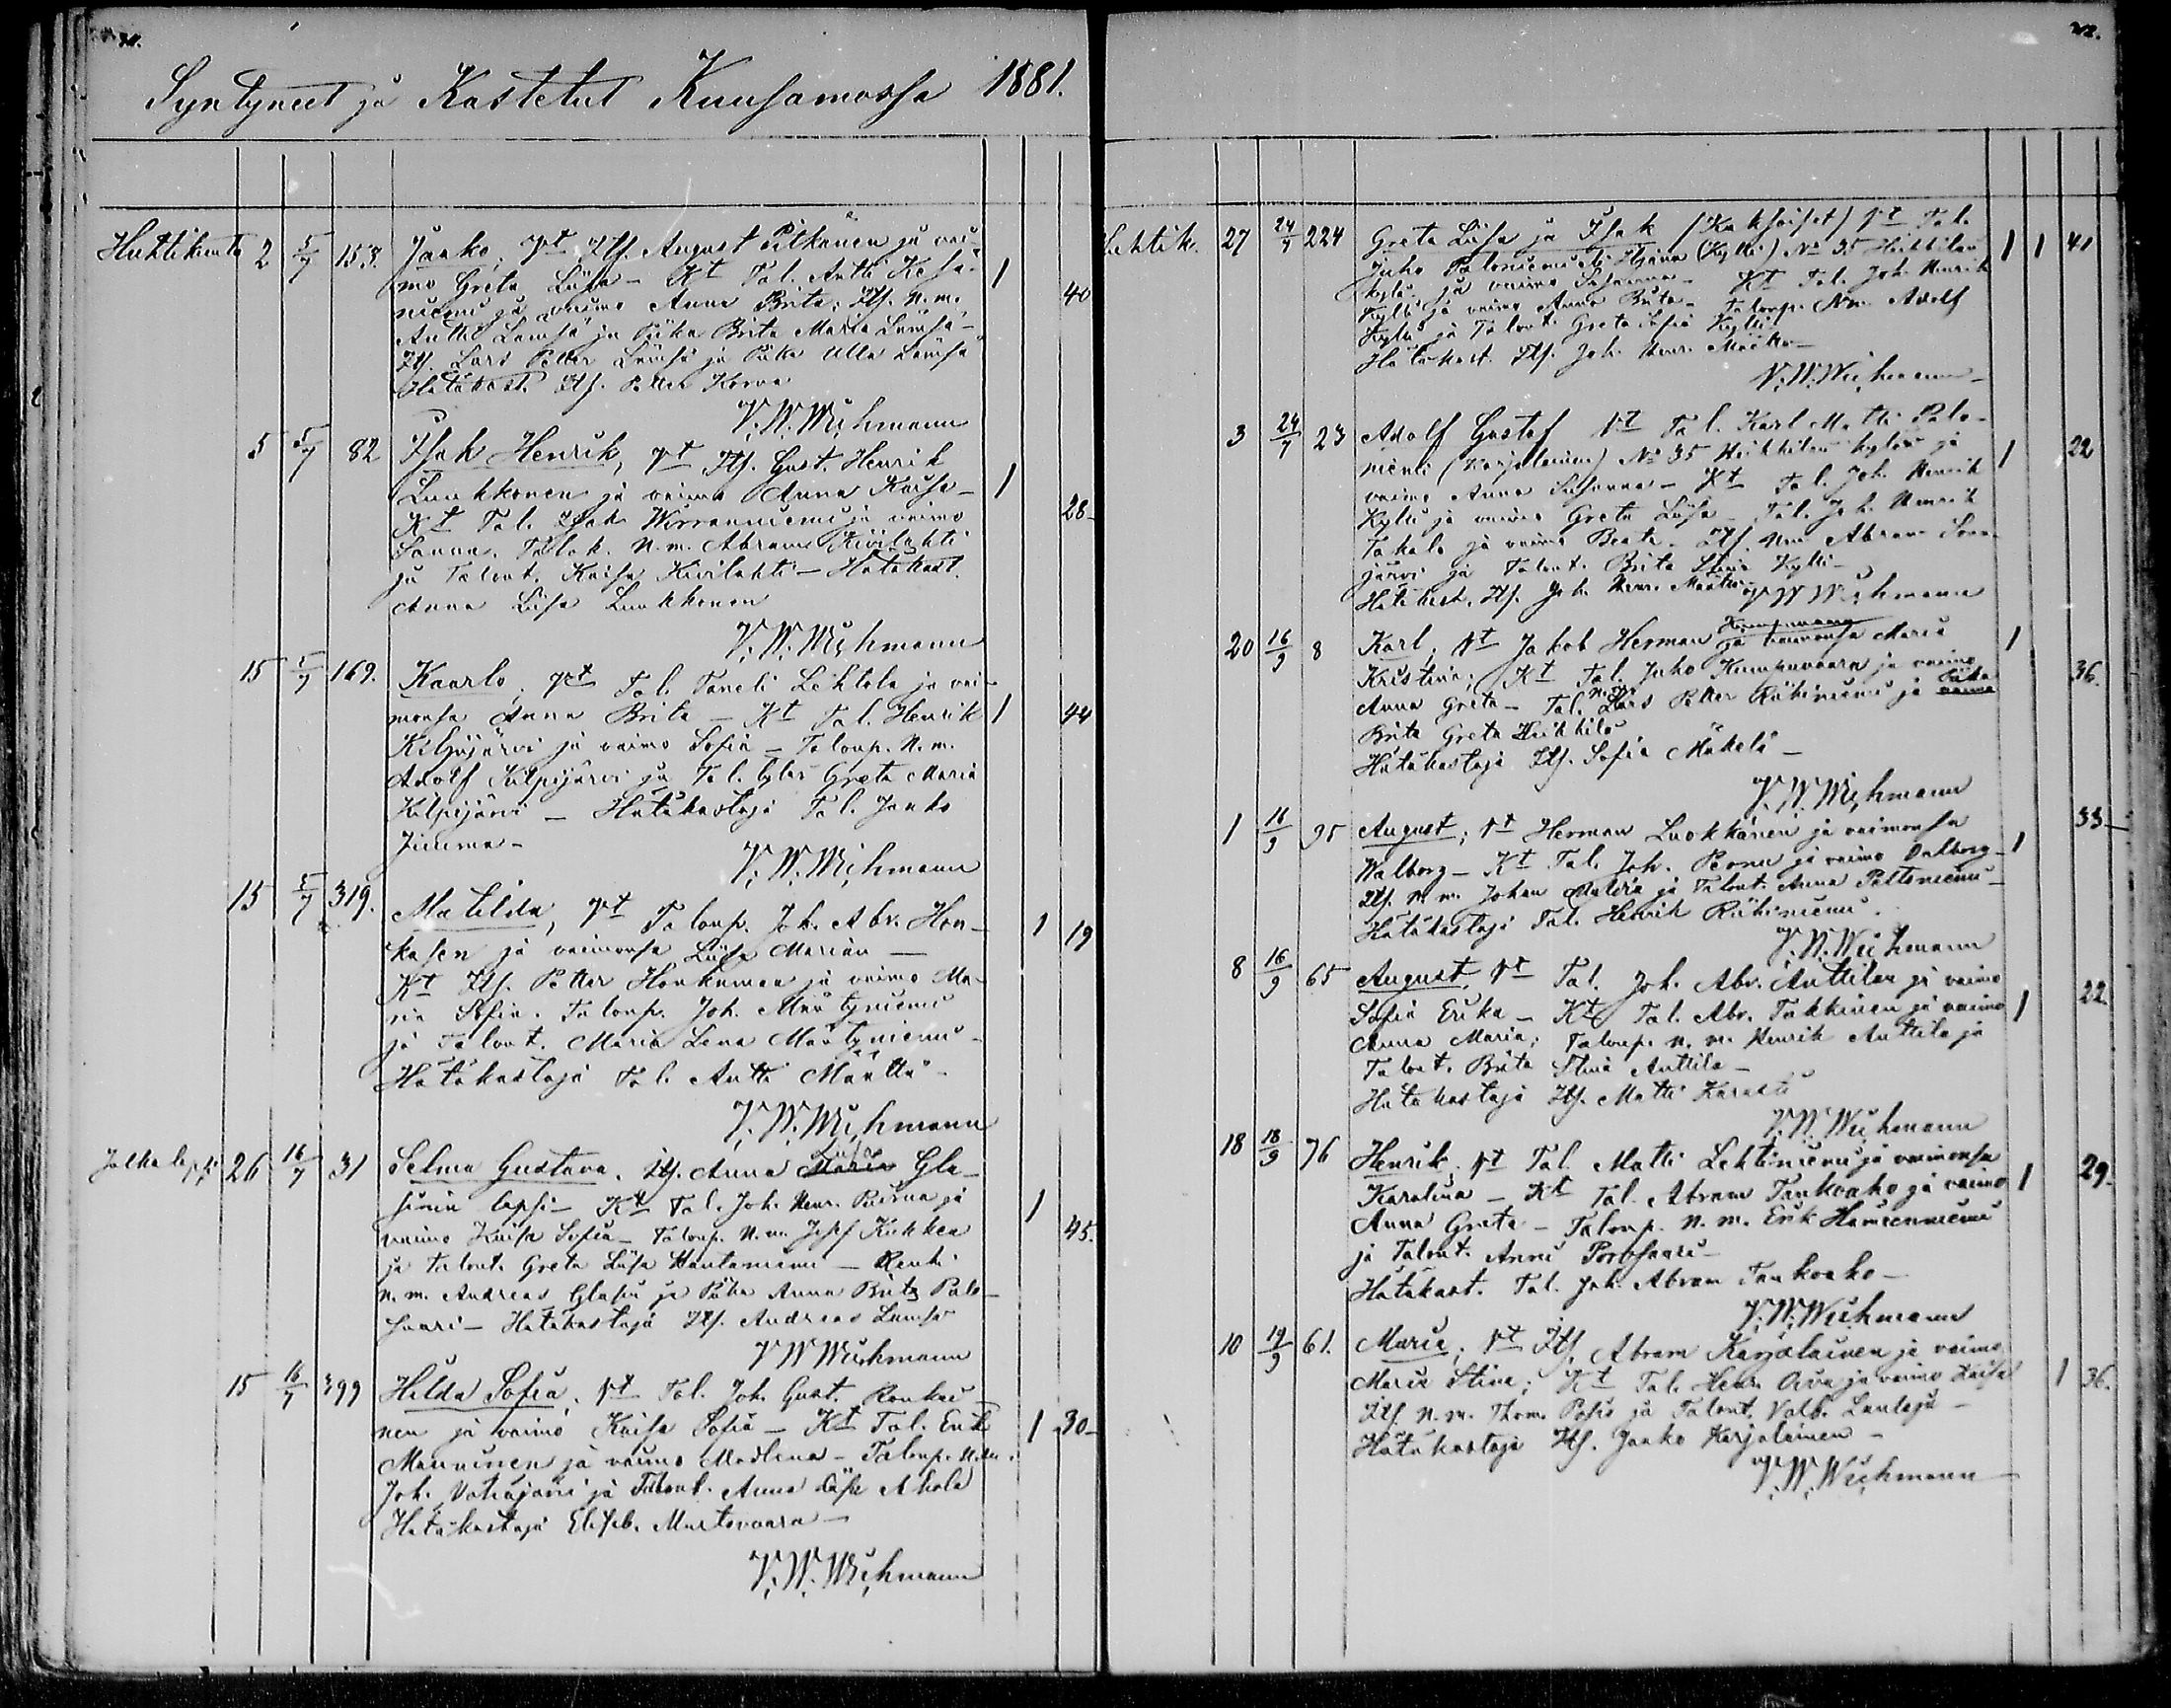 Syntyneet ja Kastetut Kuusamossa 1881.
Huhtikuuta 2 5/7 153. Jaako, Vt Itf. August Pitkänen ja vai-
mo Greta Liisa - Kt Tal. Antti Kesä- 1
niemi ja vaimo Anna Brita; Itf. N.m. 40
Antti Lämsä ja Piika Brita Maria Lämsä -
Itf. Lars Petter Lämsä ja Piika Ulla Lämsä
Hätäkast. Itf. Petter Korva
V. W. Wichmann
5 5/7 82 Isak Henrik, Vt Itf. Gust. Henrik
Luukkonen ja vaimo Anna Kaisa - 1
Kt Tal. Isak Wirranniemi ja vaimo 28-
Sanna. N.m. Abram Kivilahti
ja Talont. Kaisa Kivilahti - Hätäkast.
Anna Liisa Luukkonen
V. W. Wichmann
15 5/7 169. Kaarlo, Vt Tal. Taneli Lehtola ja vai-
monsa Anna Brita - Kt Tal. Henrik 1 44
Kilpijärvi ja vaimo Sofia - Talonp. N.m.
Adolf Kilpijärvi ja Tal. Greta Maria
Kilpijärvi - Hätäkastaja Tal. Jaako
Jiurma -
V. W. Wichmann
15 5/7 319. Matilda, Vt Talonp. Joh. Abr. Hon- 1 19
kasen ja vaimonsa Liisa Marian -
Kt Itf. Petter Honkanen ja vaimo Ma-
ria Sofia. Talonp. Joh. Mäntyniemi
ja Talont. Maria Lena Mäntyniemi -
Hätäkastaja Tal. Antti Määttä -
V. W. Wichmann
Jalka lapsi 26 16/7 31 Selma Gustava. Itf. Anna Maria Liisa Gla-
sinin lapsi - Kt Tal. Joh. Henr. Piirna ja 1
vaimo Kaisa Sofia - Talonp. N.m. Josef Kukkea 45.
ja talont. Greta Liisa Hautaniemi - Renki
N.m. Andreas Glasin ja Piika Anna Brita Palo-
saari - Hätäkastaja Itf. Andreas Lämsä
V W Wichmann
15 16/7 399 Hilda Sofia. Vt Tal. Joh. Gust. Ronkai-
nen ja vaimo Kaisa Sofia - Kt Tal. Erik 1 30-
Manninen ja vaimo Madlena - Talonp. N.m.
Joh. Vatajärvi ja Talont. Anna Liisa Ahola
Hätäkastaja Elisab. Murtovaara -
V. W. Wichmann
Huhtik. 27 24/7 224 Greta Liisa ja Isak (Kaksoiset) Vt Tal. 1 1 41
Juho Paloniemi (Kylli) No 35 Heikkilän
kylä ja vaimo Susanna - Kt Tal. Joh. Henrik
Kylli ja vaimo Anna Brita - Talonp. N.m. Adolf
Kylli ja Talont. Greta Sofia Kylli
Hätäkast. Itf. Joh. Henr. Määtta -
V. W. Wichmann -
3 24/7 23 Adolf Gustaf Vt Tal. Karl Matti Palo-
niemi (Karjalainen) No 35 Heikkilän kylän ja 1 22
vaimo Anna Susanna - Kt Tal. Joh. Henrik
Kylli ja vaimo Greta Liisa - Tal. Joh. Henrik
Takalo ja vaimo Beata - Itf. N.m. Abram
järvi ja Talont. Brita Stina Kylli -
Hätäkast. Itf. Joh. Henr. Määtta V W Wichmann
20 16/9 8 Karl, Vt Jakob Herman Kumpuvaara ja vaimonsa Maria 1
Kristina; Kt Tal. Juho Kumpuvaara ja vaimo 36.
Anna Greta - Tal. N.m. Lars Petter Riihiniemi ja vaimo Piika
Brita Greta Heikkilä
Hätäkastaja Itf. Sofia Mäkelä -
V. W. Wichmann
1 16/9 95 August; Vt Herman Luokkanen ja vaimonsa 33-
Walborg - Kt Tal. Joh. Perna ja vaimo Valborg - 1
Itf. N.m. Johan Matéra ja Talont. Anna Poltsniemi -
Hätäkastaja Tal. Henrik Riihiniemi.
V. W. Wichmann
8 16/9 65 August, Vt Tal. Joh. Abr. Anttilan ja vaimo
Sofia Erika - Kt Tal. Abr. Takkinen ja vaimo 1 22
Anna Maria; Talonp. N.m. Henrik Anttila ja
Talont. Brita Stina Anttila -
Hätäkastaja Itf. Matti Karasti
V. W. Wichmann
18 18/9 76 Henrik, Vt Tal. Matti Lehtiniemi ja vaimonsa
Karolina - Kt Tal. Abram Taukoaho ja vaimo 1 29.
Anna Greta - Talonp. N.m. Erik Hameenniemi
ja Talont. Anni Porosaari -
Hätäkast. Tal. Joh. Abram Tankoaho -
V. W. Wichmann
10 19/9 61. Maria; Vt Itf. Abram Karjalainen ja vaimo
Maria Stina; Kt Tal. Henr. Oiva ja vaimo Kaisa 1 36.
Itf. N.m. Thom. Posio ja Talont. Valb. Lantaja -
Hätäkastaja Itf. Jaako Karjalainen -
V. W. Wichmann